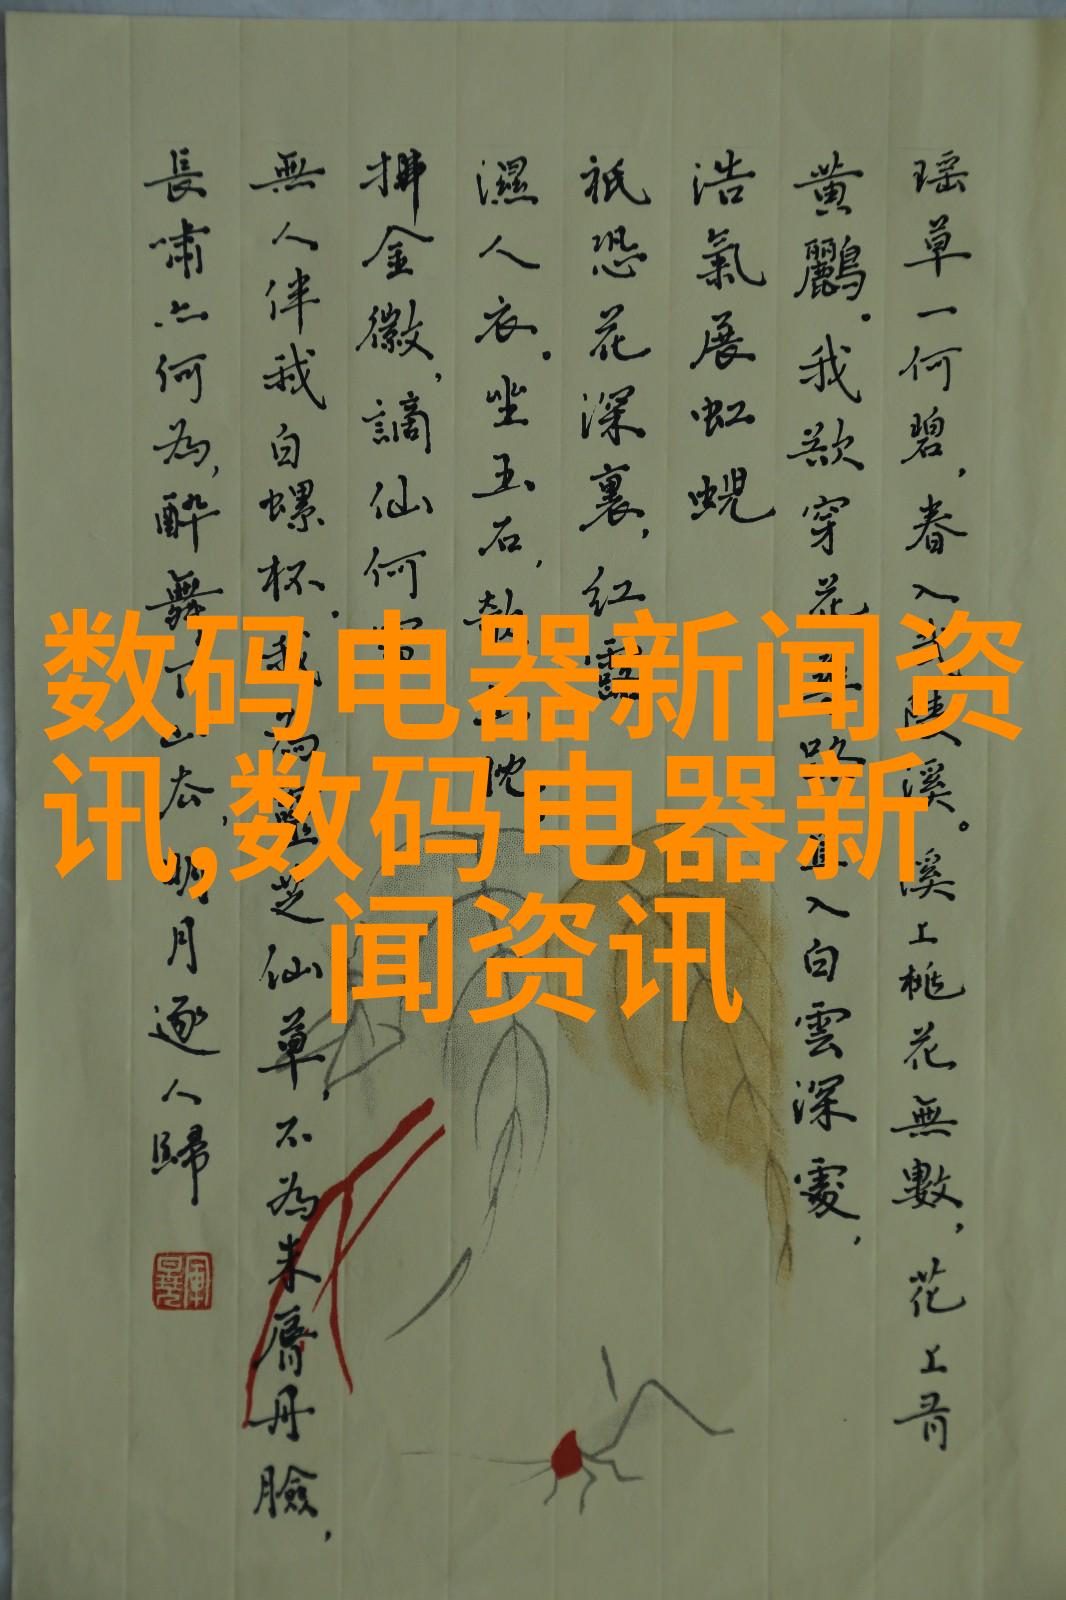 瑶草一何碧，春入武陵溪。溪上桃花無數，花上有
黄鸝。我欲穿花尋路，直入白雲深處，
浩氣展虹蜺
祇恐花深裏，紅露
濕人衣。坐玉石，欹玉枕，
拂金徽，謫仙何
無人伴我白螺杯。我為靈芝仙草，不為朱脣丹臉，
長嘯亦何為，醉舞下山去，明月逐人歸
数码电器新闻资
讯,数码电器新
闻资讯